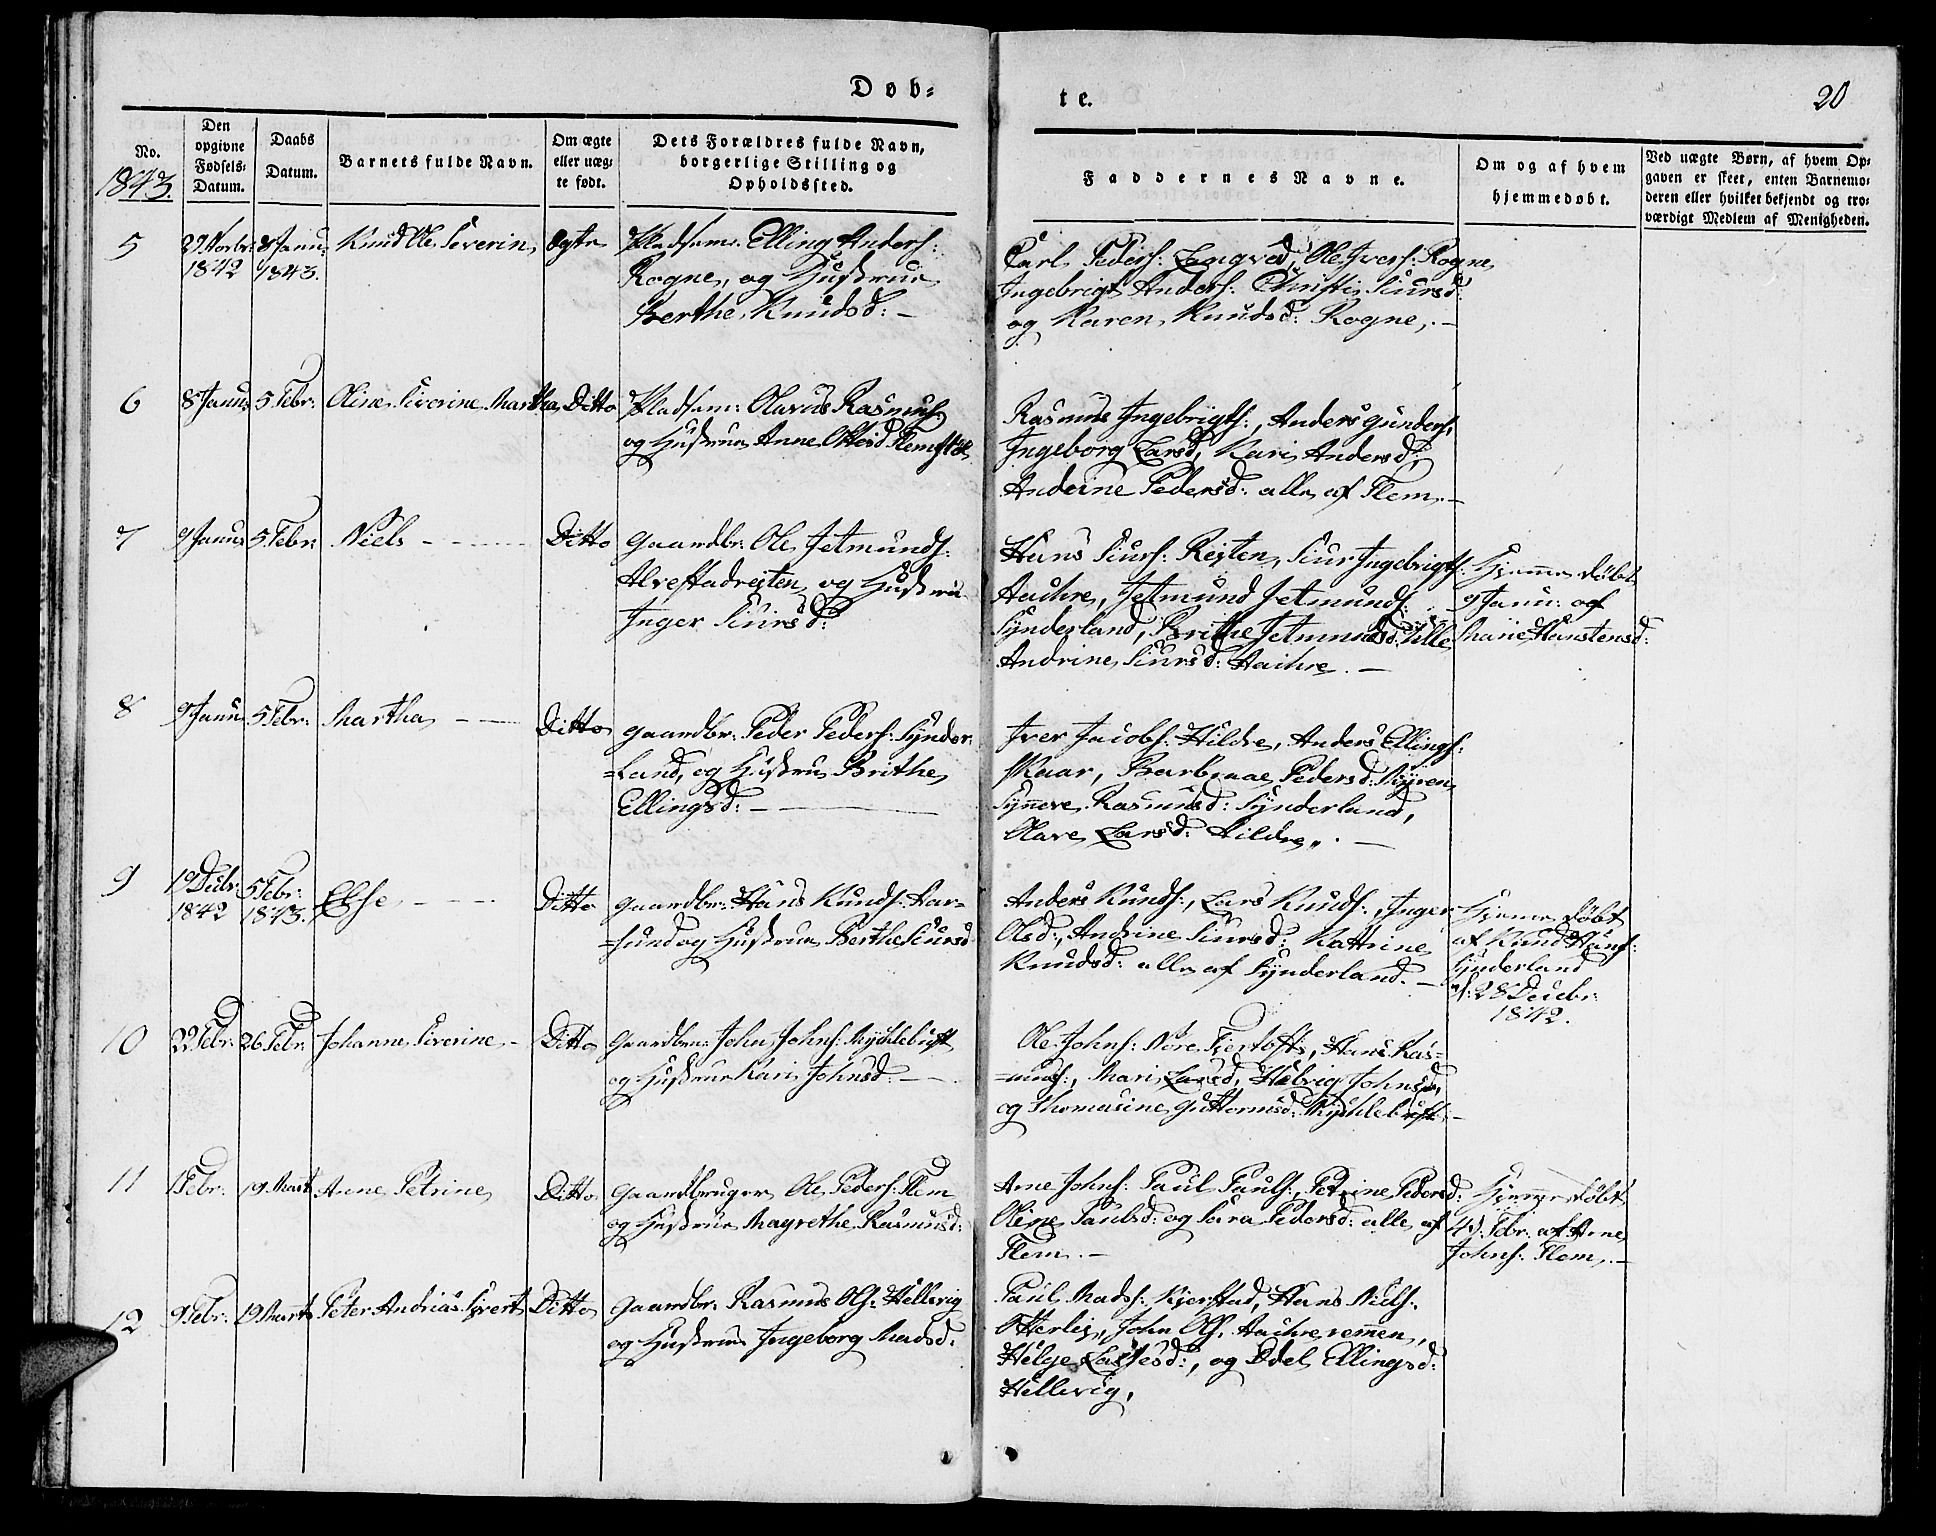 Døb-
te.
20
No.
1843.
Den
opgivne
Fødsels-
Datum.
Daabs
Datum.
Barnets fulde Navn.
Om ægte
eller uæg-
te født.
Dets Forældres fulde Navn,
borgerlige Stilling og
Opholdssted.
Faddernes Navne.
Om og af hvem
hjemmedøbt.
Ved uægte Børn, af hvem Op-
gaven er skeet, enten Barnemo-
deren eller hvilket bekjendt og tro-
værdigt Medlem af Menigheden.
5
Novbr:
1842
Janu:
1843.
Knud Ole Severin
Ægte
Pladsm: Elling Anders:
Rogne, og Hustrue
Berthe Knudsd: -
Carl Peders: Longved, Ole Ivers: Rogne
Ingebrigt Anders: Christi Siursd:
og Karen Knudsd: Rogne. -
6
8 Janu:
5 Febr:
Oline Siverine Martha
Ditto
Pladsm: Olavus Rasmus:
og Hustrue Anne Flem
Rasmus Ingebrigts:, Anders Gunders:
Ingeborg Larsd, Kari Andersd,
Andrine Pedersd: alle af Flem. -
7
9 Janu:
5 Febr:
Niels
Ditto
Gaardbr: Ole Jetmunds:
Alvestadreiten og Hustrue
Inger Siursd:
Hans Siurs: Reiten, Siur Ingebrigts:
Auhre, Jetmund Jetmunds:
Synderland, Brithe Jetmundsd: Ulle
Andrine Siursd: Auhre. -
Hjemme døbt
9 Janu: af
Marie Hanstensd:
8
9 Janu
5 Febr:
Martha
Ditto
Gaardbr: Peder Peders: Synder-
=land, og Hustrue Brithe
Ellingsd: -
Iver Jacobs: Hildre, Anders Ellings:
Skaar, Barbraae Pedersd:
Synneve Rasmusd: Synderland,
Olave Larsd: Hildre. -
9
19 Decbr:
1842
5 Febr:
1843.
Else
Ditto
Gaardbr: Hans Knuds: Har-
=sund og Hustrue Berthe Siursd
Anders Knuds:, Lars Knuds:, Inger
Olsd:, Andrine Siursd: Kattrine
Knudsd: alle af Synderland. -
Hjemme døbt
af Knud Hans:
Synderland
d: 28 Decbr:
1842.
10
22 Febr:
26 Febr:
Johanne Siverine -
Ditto
Gaardbr: John Johns: Myklebust
og Hustrue Kari Johnsd: -
Ole Johns: Nore Fjertoft, Hans Ras-
=mus:, Mari Larsd, Helvig Johnsd,
og Thomasine Guttormsd: Myklebust. -
11
1 Febr:
19 Mart
Anne Petrine
Ditto
Gaardbruger Ole Peders: Flem
og Hustrue Magrethe Rasmusd:
Arne Johns: Paul Pauls:, Petrine Pedersd:
Oline Paulsd: og Sara Pedersd: alle af
Flem. -
Hjemme døbt
4d: Febr: af Arne
Johns: Flem. -
12
9 Febr:
19 Mart
Peter Andreas Syvert
Ditto
Gaardbr: Rasmus Ols: Hellevig
og Hustrue Ingeborg Madsd:
Paul Mads: Kjerstad, Hans Niels:
Otterlei, John Ols, Auhreremen,
Helge Lassesd:, og Odel Ellingsd:
Hellevig,